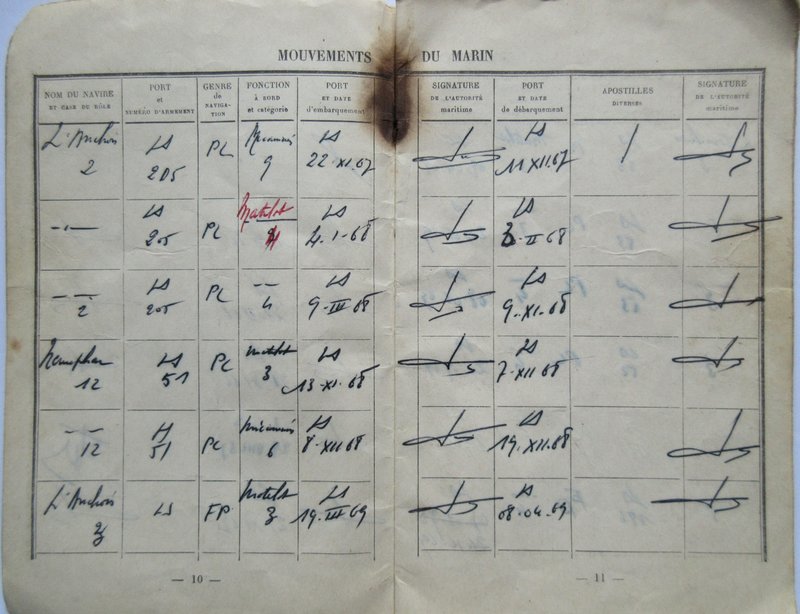 MOUVEMENTS DU MARIN
NOM DU NAVIRE
ET CASE DU RÔLE
PORT
et
NUMÉRO D'ARMEMENT
GENRE
de
NAVIGA-
TION
FONCTION
À BORD
et catégorie
PORT
ET DATE
d'embarquement
SIGNATURE
DE L'AUTORITÉ
maritime
PORT
ET DATE
de débarquement
APOSTILLES
DIVERSES
SIGNATURE
DE L'AUTORITÉ
maritime
L'Anchois
2
LS
205
PL
9
LS
22.XI.67
LS
11 XII.67
/
-"-
LS
205
PL
Matelot
4
LS
4.1-68
LS
3-II-68
-"-
2
LS
205
PL
-"-
4
LS
9-III-68
LS
9.XI.68
12
LS
51
PL
matelot
3
LS
13-XI-68
LS
7-XII 68
-"-
12
51
PL
6
LS
8-XII 68
LS
19.XII.68
L'Anchois
LS
FP
Matelot
3
LS
19.III 69
LS
08.04.69
— 10 —
— 11 —